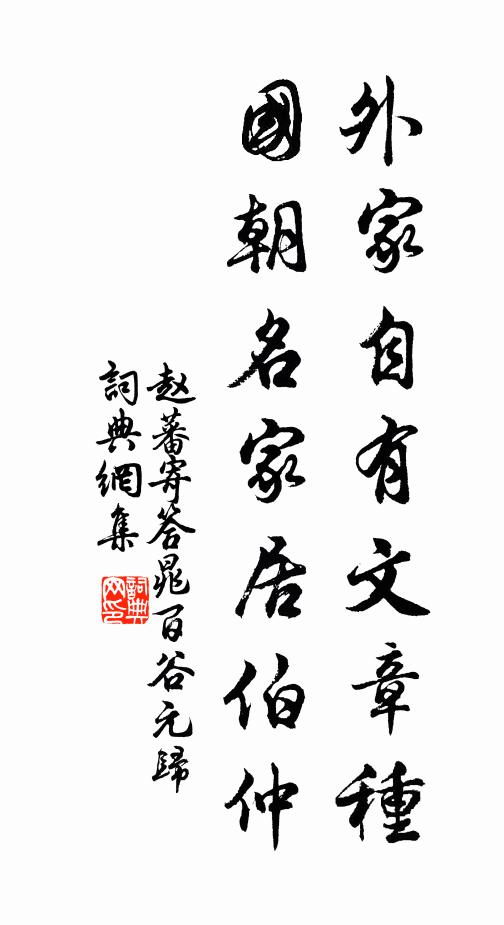 外家自有文章種
國朝名家居伯仲
赵蕃寄答晁百谷元歸
詞典網集
詞典
网印